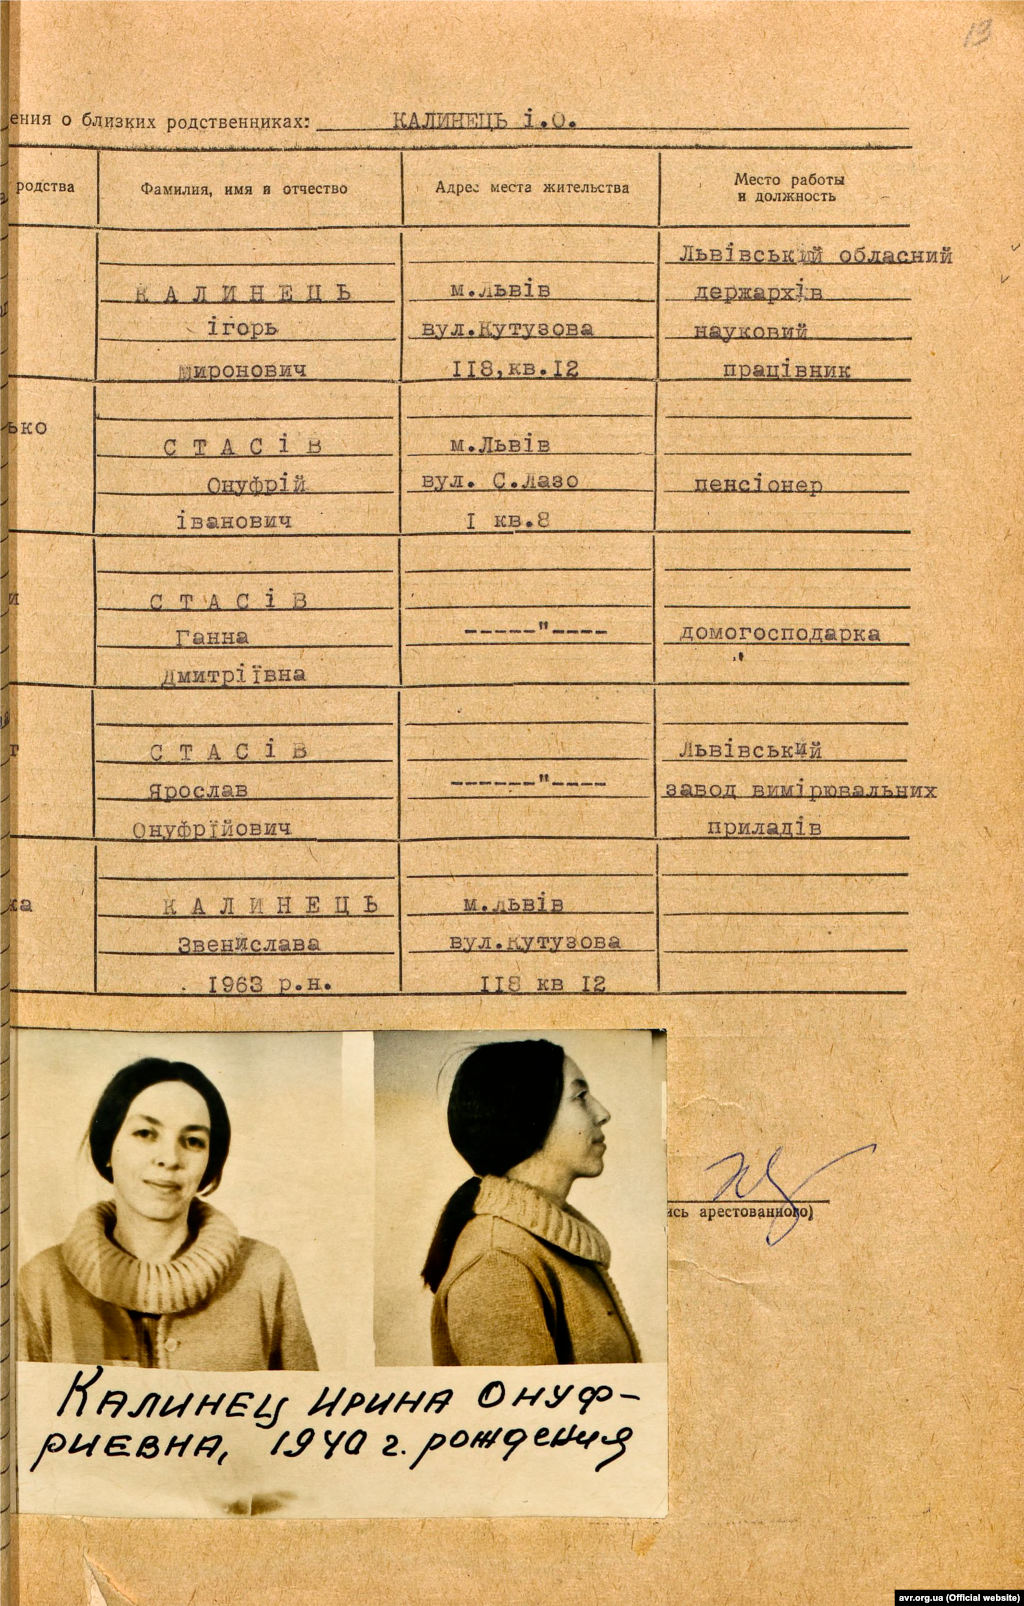 13
ения о близких родственниках: КАЛИНЕЦЬ і.О.
родства Фамилия, имя и отчество Адрес места жительства Место работы
и должность
Львівський обласний
К А Л И Н Е Ц Ь м.Львів держархів
ігорь вул.Кутузова науковий
миронович ІІ8,кв.І2 працівник
ько
С Т А С і В м.Львів
Онуфрій вул. С.Лазо пенсіонер
іванович І кв.8
и С Т А С і В
Ганна -----"---- домогосподарка
Дмитріївна
г С Т А С і В Львівський
Ярослав ------"---- завод вимірювальних
Онуфрїйович приладів
ка К А Л И Н Е Ц Ь м.Львів
Звенислава вул.Кутузова
І963 р.н. ІІ8 кв І2
ись арестованного)
Калинец Ирина Онуф-
риевна, 1940 г. рождения
avr.org.ua (Official website)